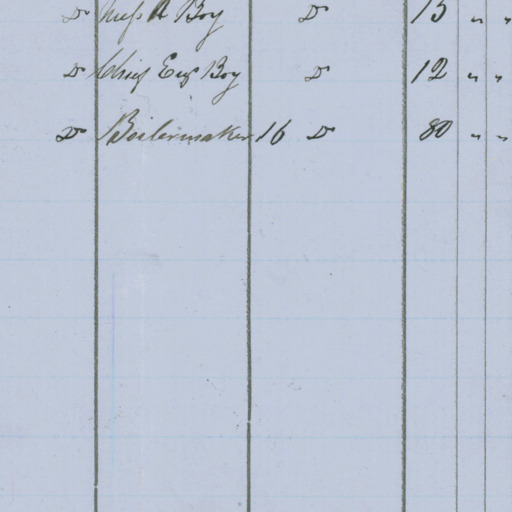 Do Mess R Boy Do 15 " "
Do Chief Eng Boy Do 12 " "
Do Boilermaker 16 Do 80 " "